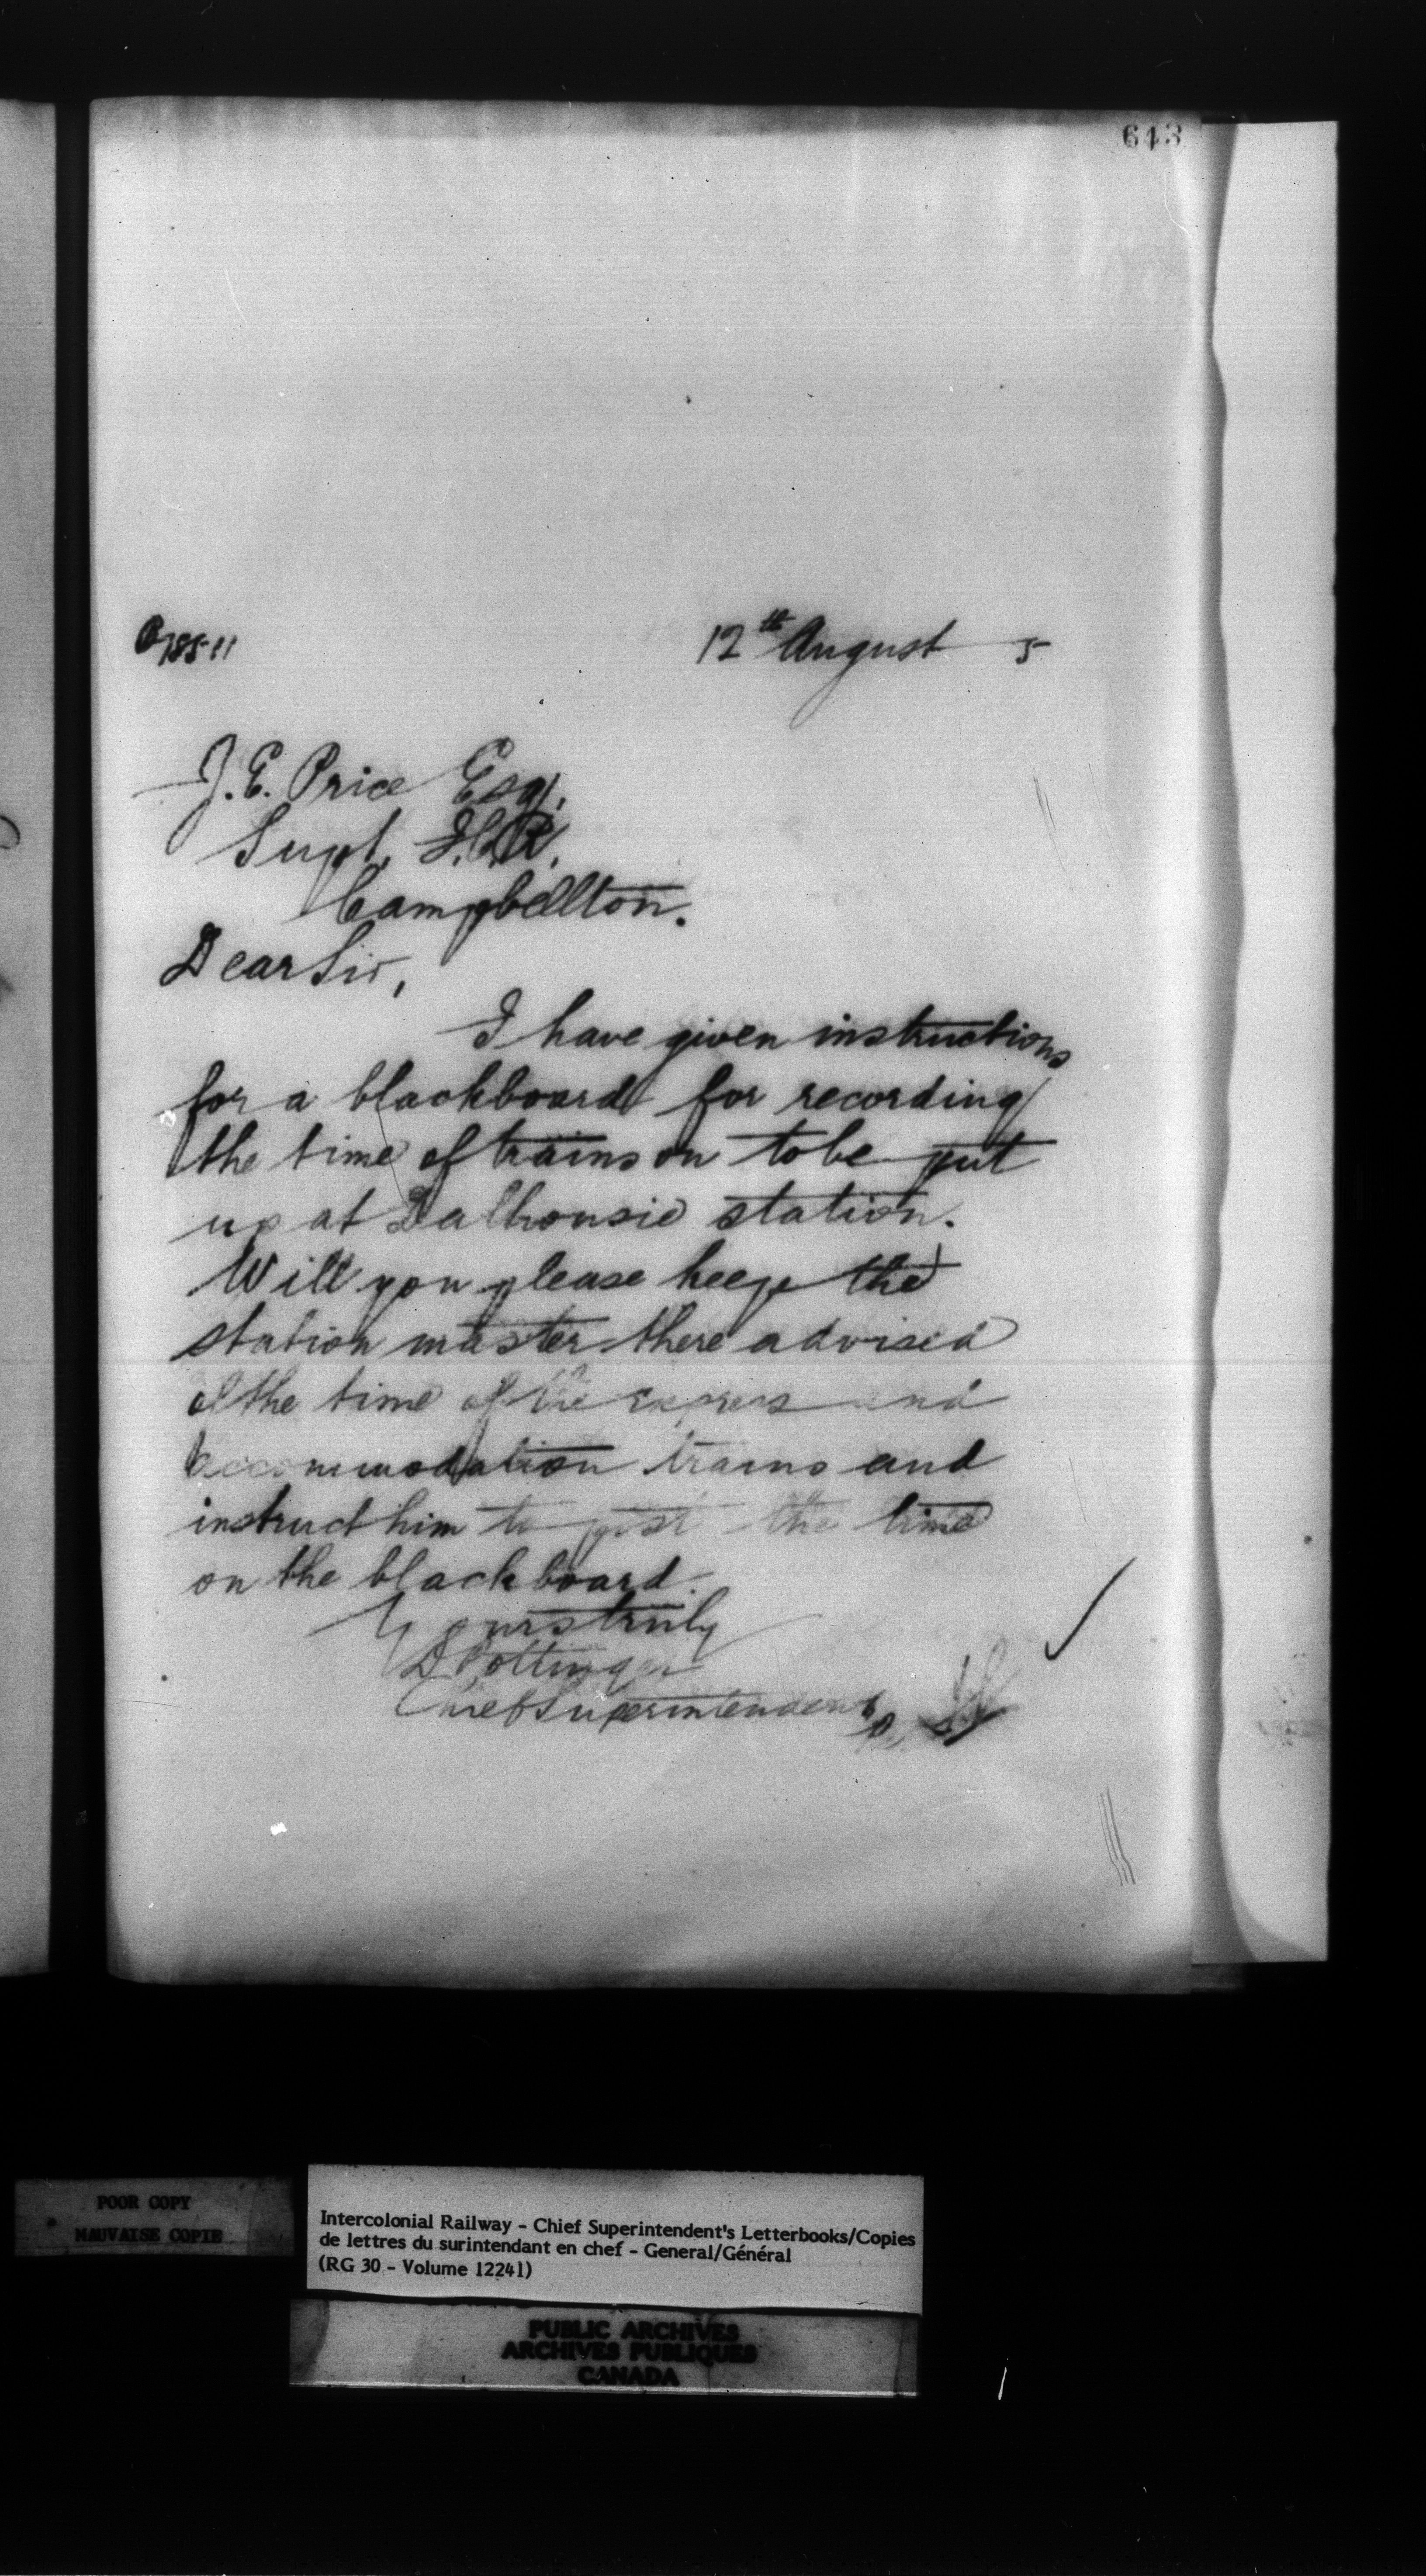 643
12th August 5
J. E. Price Esq,
Supt. I.C.R.
Campbellton.
Dear Sir,
I have given instructions
for a blackboard for recording
the time of trains on to be put
up at Dalhousie station.
Will you please keep the
station master there advised
of the time of the express and
accommodation trains and
instruct him to post the time
on the blackboard.
Yours truly
D Pottinger
Chief Superintendent
POOR COPY
MAUVAISE COPIE
Intercolonial Railway - Chief Superintendent's Letterbooks/Copies
de lettres du surintendant en chef - General/Général
(RG 30 - Volume 12241)
PUBLIC ARCHIVES
ARCHIVES PUBLIQUES
CANADA